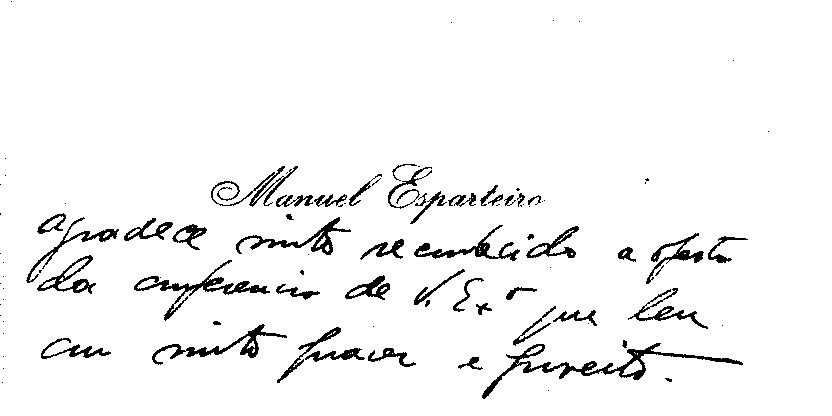 Manuel Esparteiro
agradece muito reconhecido a oferta
da conferencia de V. Exª que leu
com muito prazer e proveito.